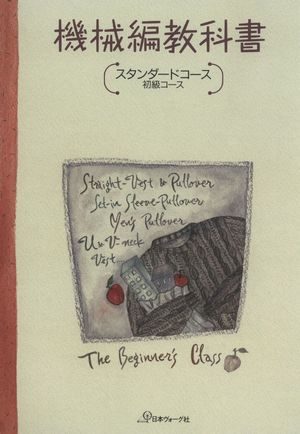 機械編教科書
スタンダードコース
初級コース
Straight-Vest & Pullover
Set-in Sleeve-Pullover
Men's Pullover
U & V-neck
Vest...
The Beginner's Class
日本ヴォーグ社